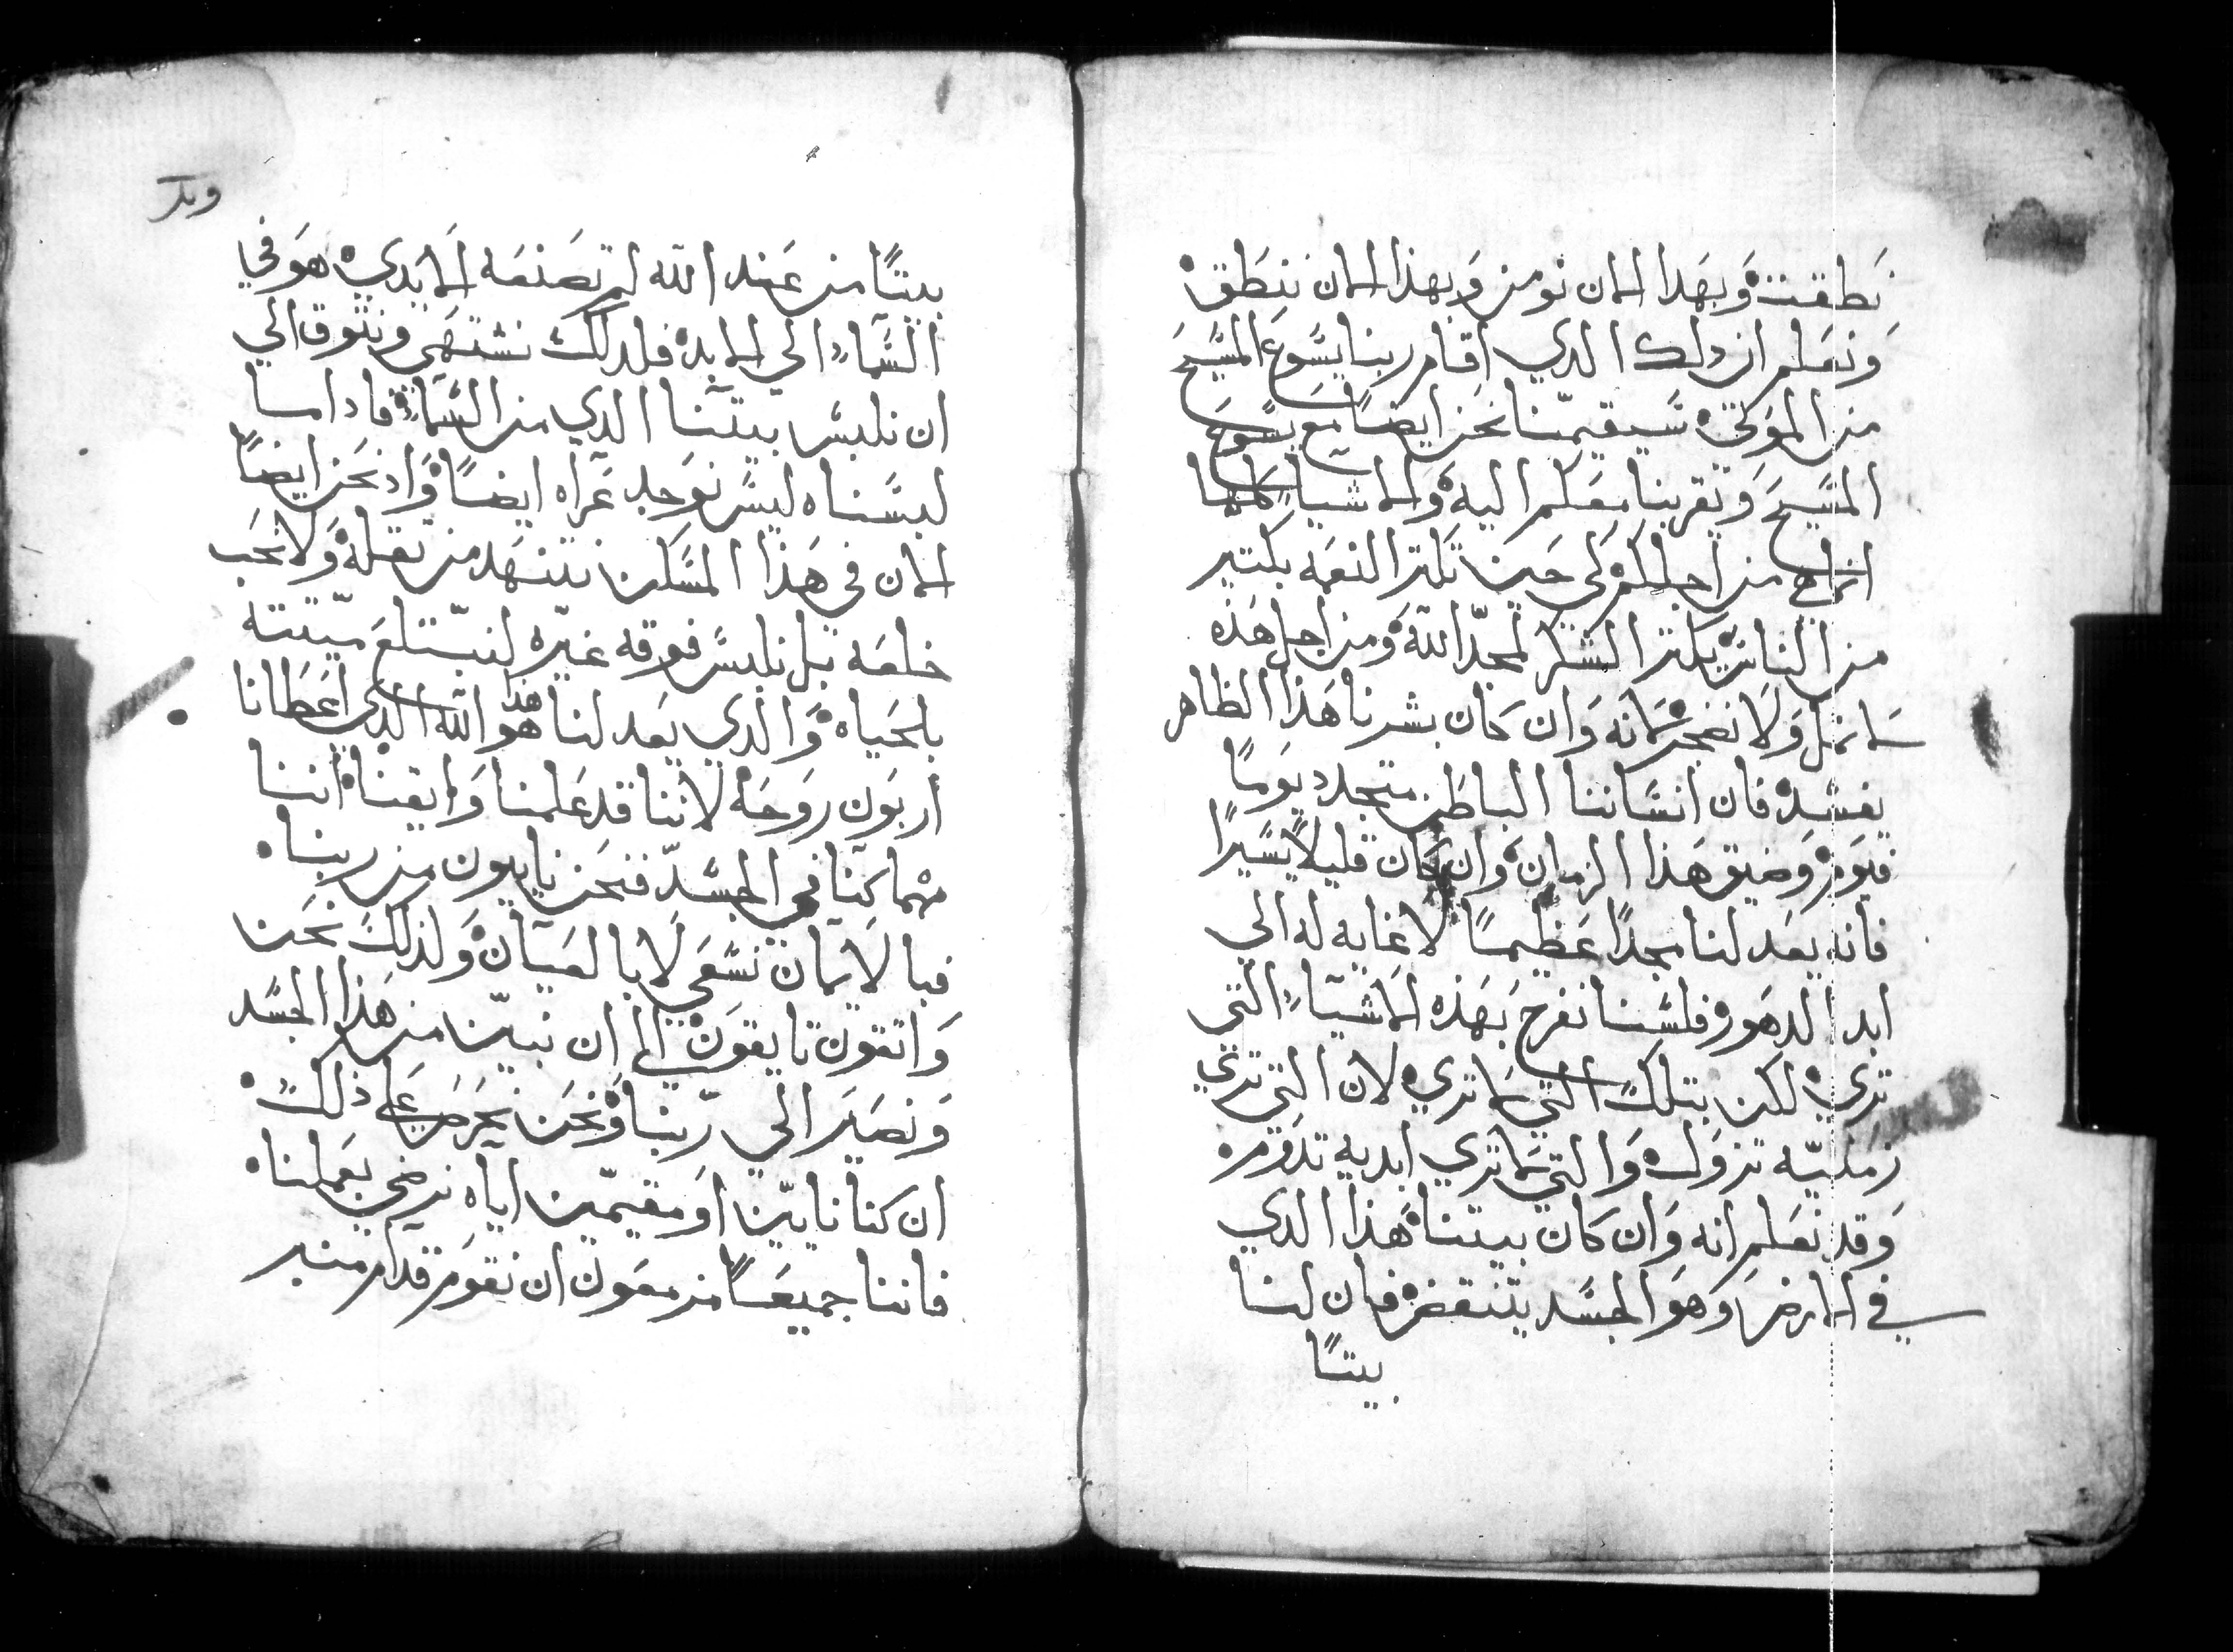 نطقت وبهدا الامان نومن وبهذا الامان ننطق
ونعلم ان دلك الدي اقام ربنا يسوع المسيح
من الموتى سيقيمنا نحن ايضًا مع يسوع
المسيح ويقربنا معكم اليه والاشياء كلها
انما هي من اجلكم لكي حين تكتر النعمه بكتير
من الناس يكتر الشكر لمجد الله ومن اجل هذه
لا نمل ولا نضجر لانه وان كان بشرنا هذا الظاهر
يفسد فان انساننا الباطن متجدد يومًا
فيوم وضيق هذا الزمان وان كان قليلا يسيرًا
فانه يعد لنا مجدًا عظيمًا لا غايه له الى
ابد الدهور فلسنا نفرح بهذه الاشياء التي
تري لكن بتلك التي لا تري لان التي تري
زمنيه تزول والتي لا تري ابديه تدوم
وقد نعلم انه وان كان بيتنا هذا الدي
في الارض وهو الجسد ينتقض فان لنا
بيتًا
بيتًا من عند الله لم تصنعه الايدي هو في
السماء الى الابد فلدلك نشتهي ونتوق الى
ان نلبس بيتنا الدي من السماء فادا ما
لبسناه ليس نوجد عراه ايضًا واد نحن ايضًا
الان في هذا المسكن نتنهد من تقله ولا نحب
خلعه بل نلبس فوقه غيره لتبتلع ميتته
بالحياه والدي يعد لنا هدا هو الله الدي اعطانا
اربون روحه لاننا قد علمنا وايقنا اننا
مهما كنا في الجسد فنحن نايبون من ربنا
فبالايمان نسعى لا بالعيان ولذلك نحن
واتقون تايقون الى ان نبين من هذا الجسد
ونصير الى ربنا ونحن نحرص على ذلك
ان كنا نايين او مقيمين اياه نرضي بعملنا
فاننا جميعًا مزمعون ان نقوم قدام منبر